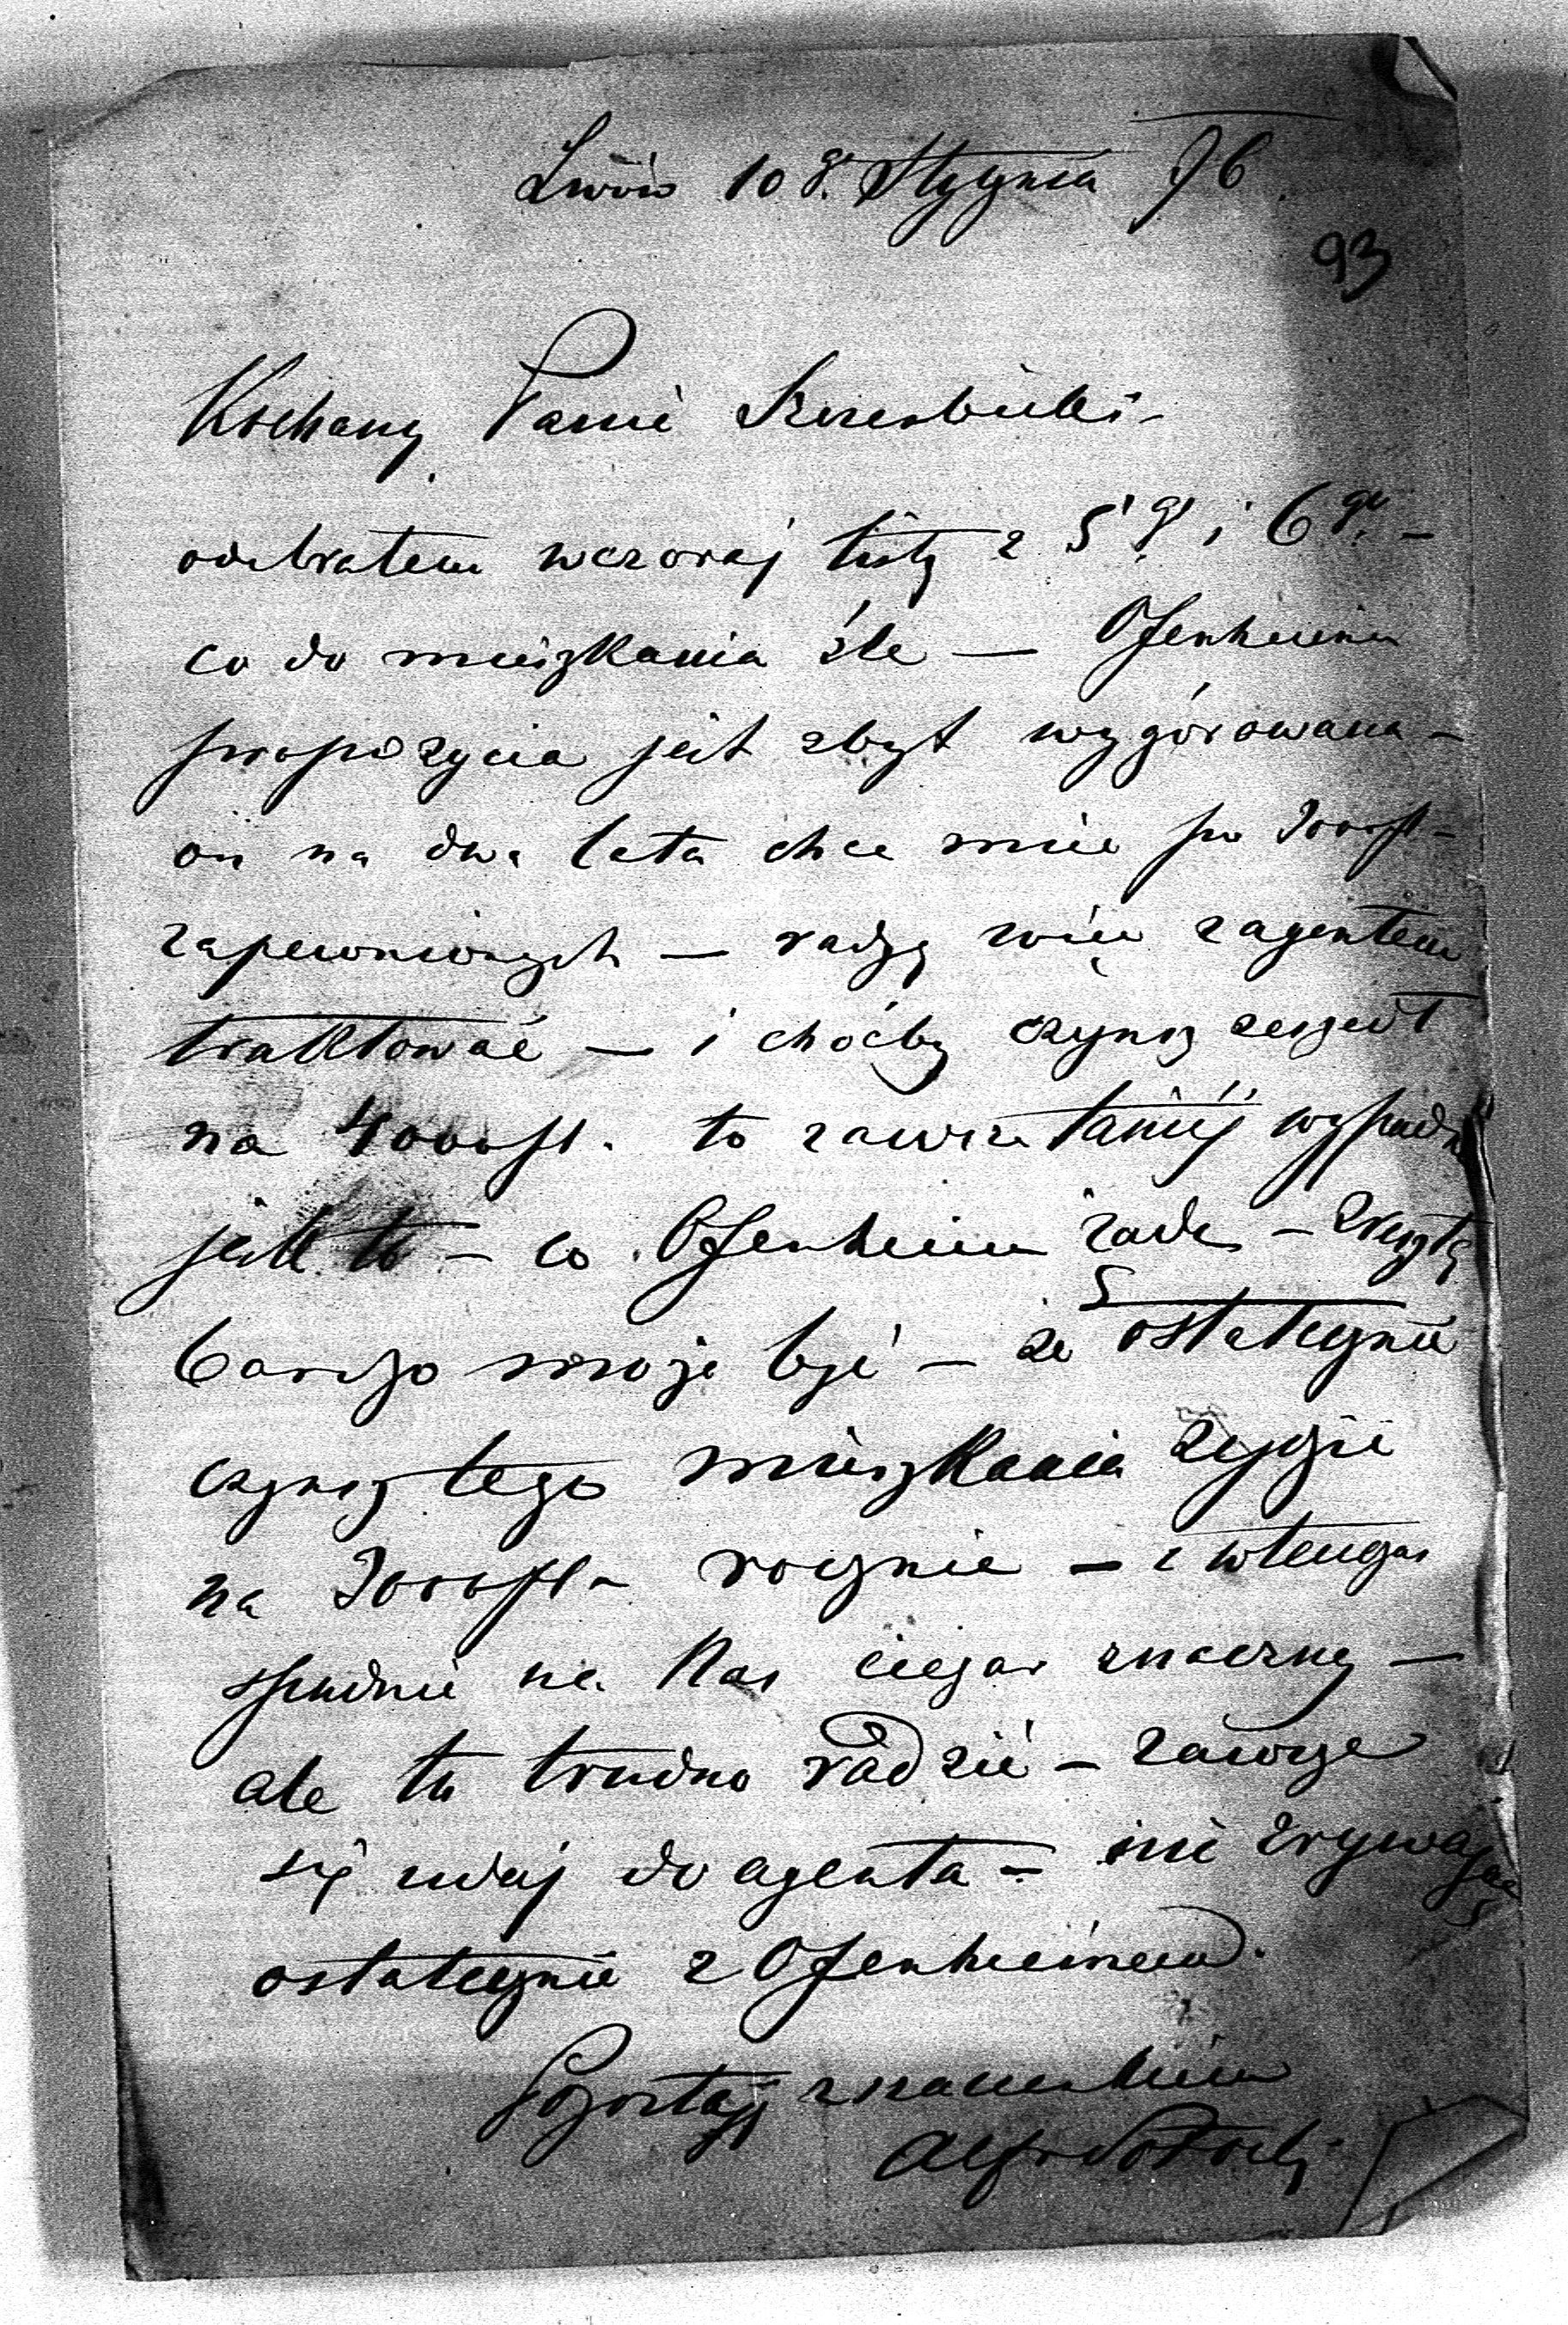 Lwów 10 go Stycznia 76
93
Kochany Panie
odebrałem wczoraj listy z 5 go i 6 go –
co do mieszkania źle — Ofenheima
propozycia jest zbyt wygórowana –
on na dwa lata chce mieć po
zapewnionych — radzę więc z agentem
traktować — i choćby czynsz zeszedł
na 4000 fl. to zawsze taniej wypadnie
jak to – co Ofenheim żąda – Zresztą
bardzo może być – że ostatecznie
czynsz tego mieszkania zejdzie
na rocznie – i wtenczas
spadnie na nas ciężar znaczny —
ale tu trudno radzić – zawsze
się udaj do agenta – nie zrywając
ostatecznie z Ofenheimem.
Pozostaję z szacunkiem
Alfred Potocki